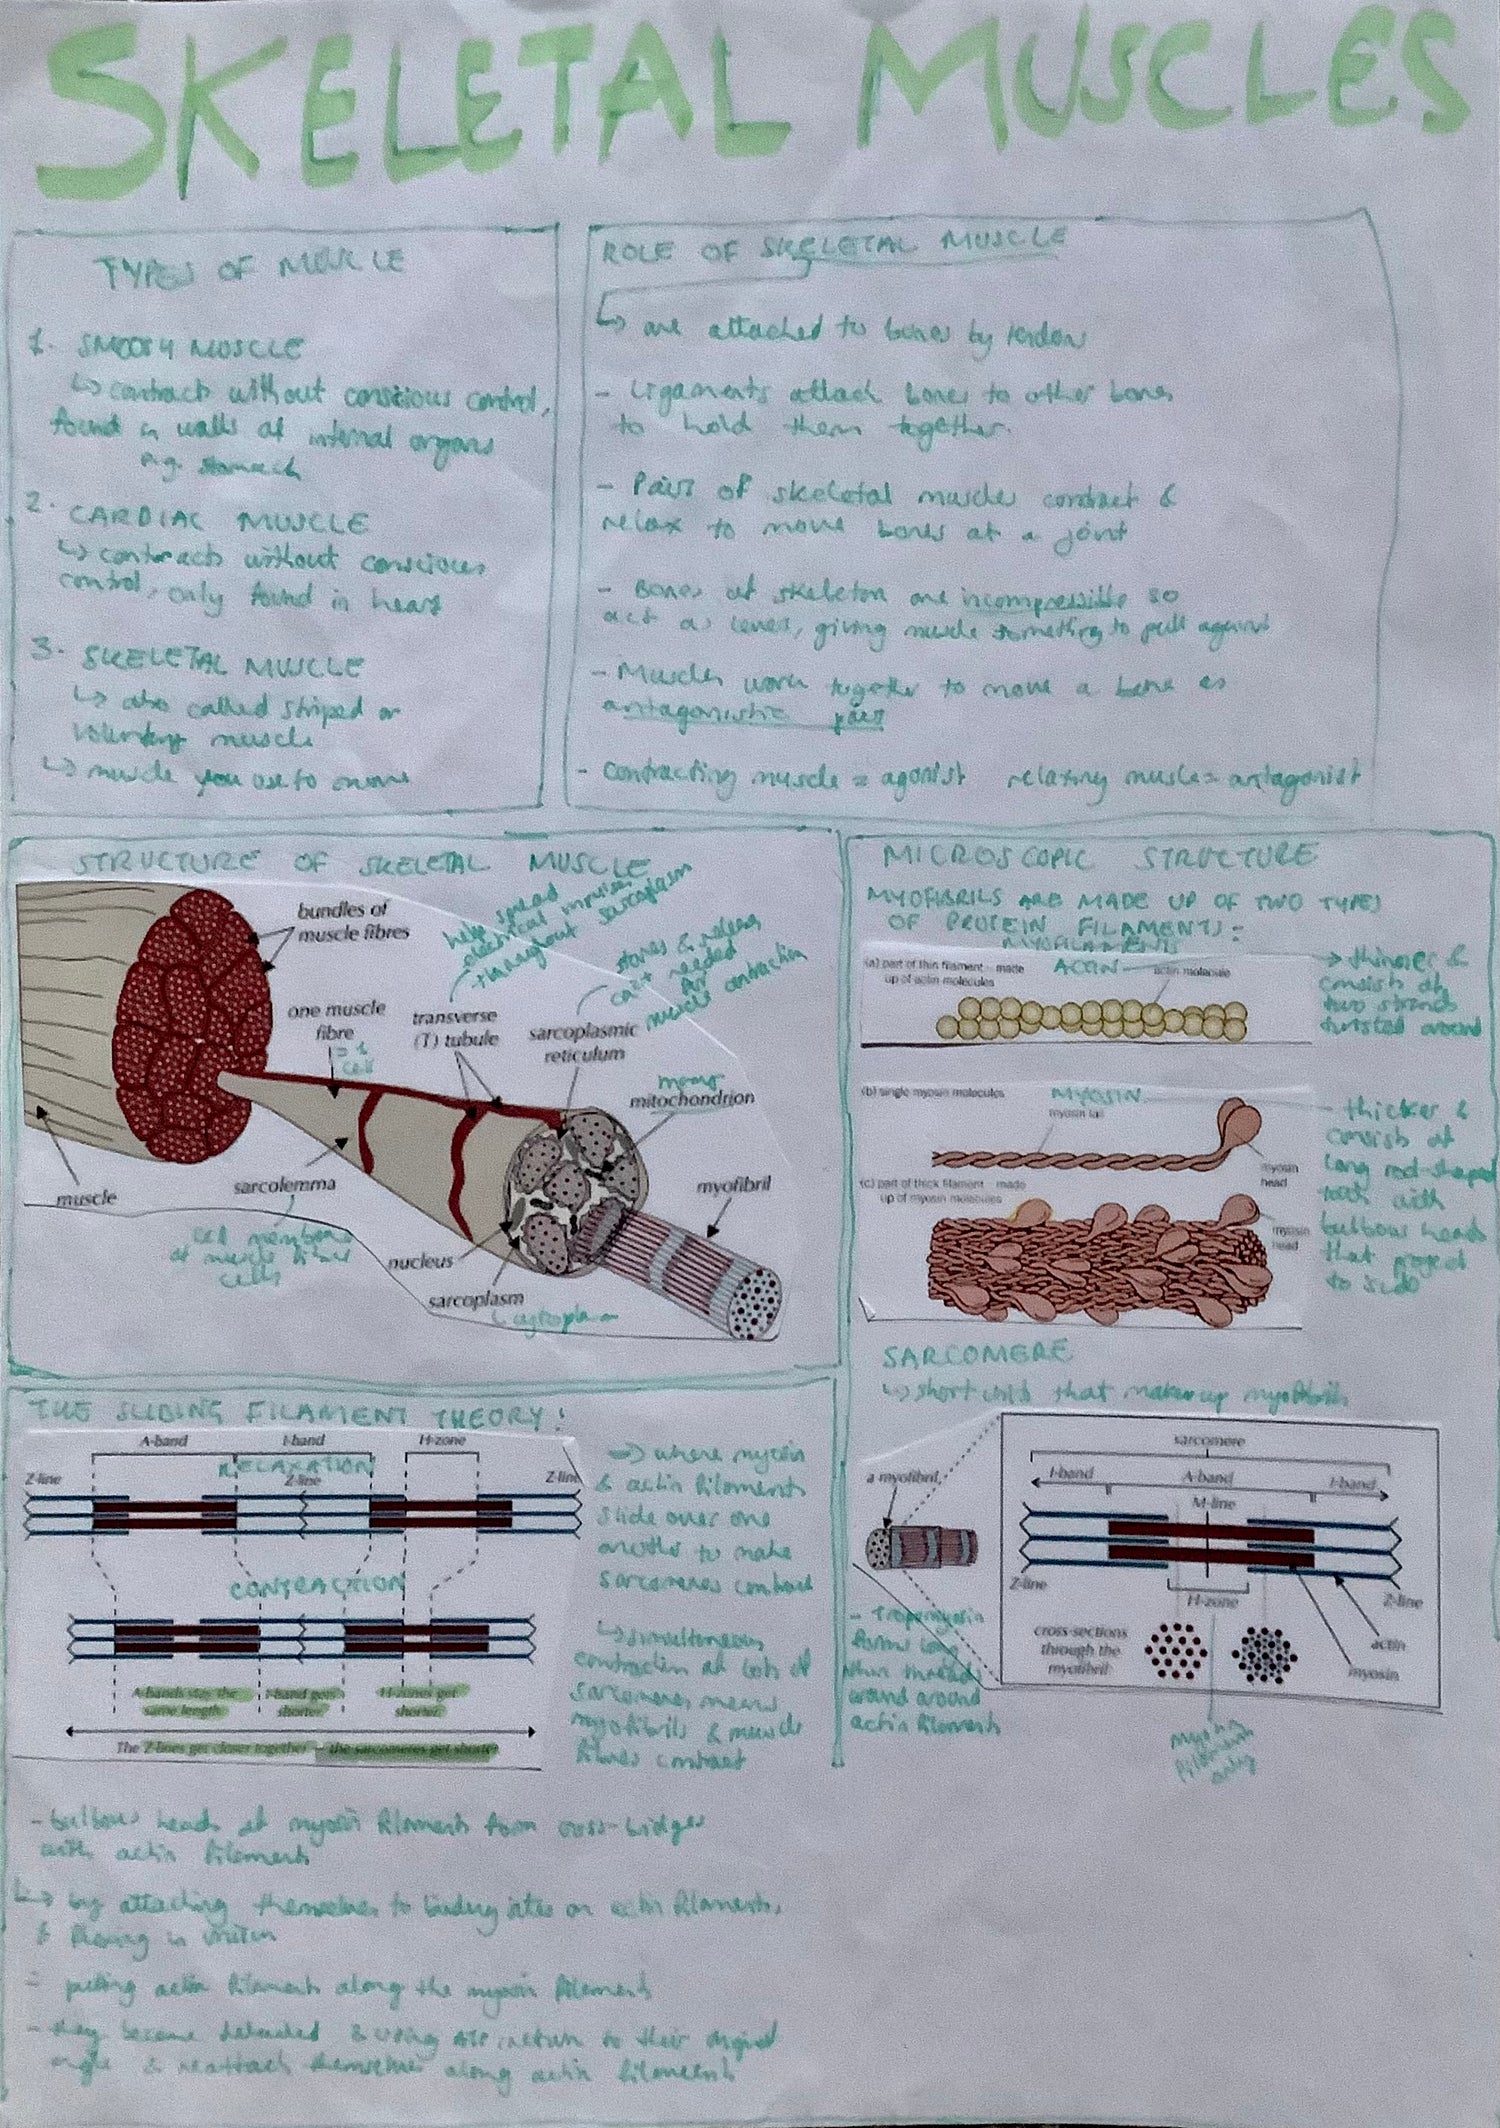 SKELETAL MUSCLES
TYPES OF MUSCLE
1. SMOOTH MUSCLE
↳ contracts without conscious control,
found in walls of internal organs
e.g. stomach
2. CARDIAC MUSCLE
↳ contracts without conscious
control, only found in heart
3. SKELETAL MUSCLE
↳ also called striped or
voluntary muscle
↳ muscle you use to move
ROLE OF SKELETAL MUSCLE
↳ are attached to bones by tendons
- Ligaments attach bones to other bones
to hold them together.
- Pairs of skeletal muscles contract &
relax to move bones at a joint
- Bones of skeleton are incompressible so
act as levers, giving muscle something to pull against
- Muscles work together to move a bone as
antagonistic pair
- contracting muscle = agonist relaxing muscle = antagonist
STRUCTURE OF SKELETAL MUSCLE
bundles of
muscle fibres
help spread
electrical impulses
throughout sarcoplasm
stores & releases
Ca2+ needed
for
muscle contraction
one muscle
fibre
= 1
cell
transverse
(T) tubule
sarcoplasmic
reticulum
many
mitochondrion
muscle
sarcolemma
cell membrane
of muscle fibre
cells
myofibril
nucleus
sarcoplasm
cytoplasm
MICROSCOPIC STRUCTURE
MYOFIBRILS ARE MADE UP OF TWO TYPES
OF PROTEIN FILAMENTS:
MYOFILAMENTS
(a) part of thin filament - made
up of actin molecules
ACTIN
actin molecule
→ thinner &
consists of
two strands
twisted around
(b) single myosin molecules
MYOSIN
myosin tail
myosin
head
(c) part of thick filament - made
up of myosin molecules
myosin
head
- thicker &
consists of
long rod-shaped
with
bulbous heads
that project
to side
SARCOMERE
↳ short units that make up myofibrils
a myofibril
sarcomere
I-band
A-band
I-band
M-line
Z-line
H-zone
Z-line
cross-sections
through the
myofibril:
actin
myosin
- Tropomyosin
forms long
thin threads
wound around
actin filaments
myosin
filaments
only
THE SLIDING FILAMENT THEORY:
A-band
I-band
H-zone
RELAXATION
Z-line
Z-line
Z-line
CONTRACTION
A-bands stay the
same length
I-band gets
shorter
H-zones get
shorter
The Z-lines get closer together - the sarcomeres get shorter
→ where myosin
& actin filaments
slide over one
another to make
sarcomeres contract
↳ simultaneous
contraction of lots of
sarcomeres means
myofibrils & muscle
fibres contract
- bulbous heads of myosin filaments form cross-bridges
with actin filaments
↳ by attaching themselves to binding sites on actin filaments,
& flexing in unison
- pulling actin filaments along the myosin filaments
- they become detached & using ATP return to their original
angle & reattach themselves along actin filaments